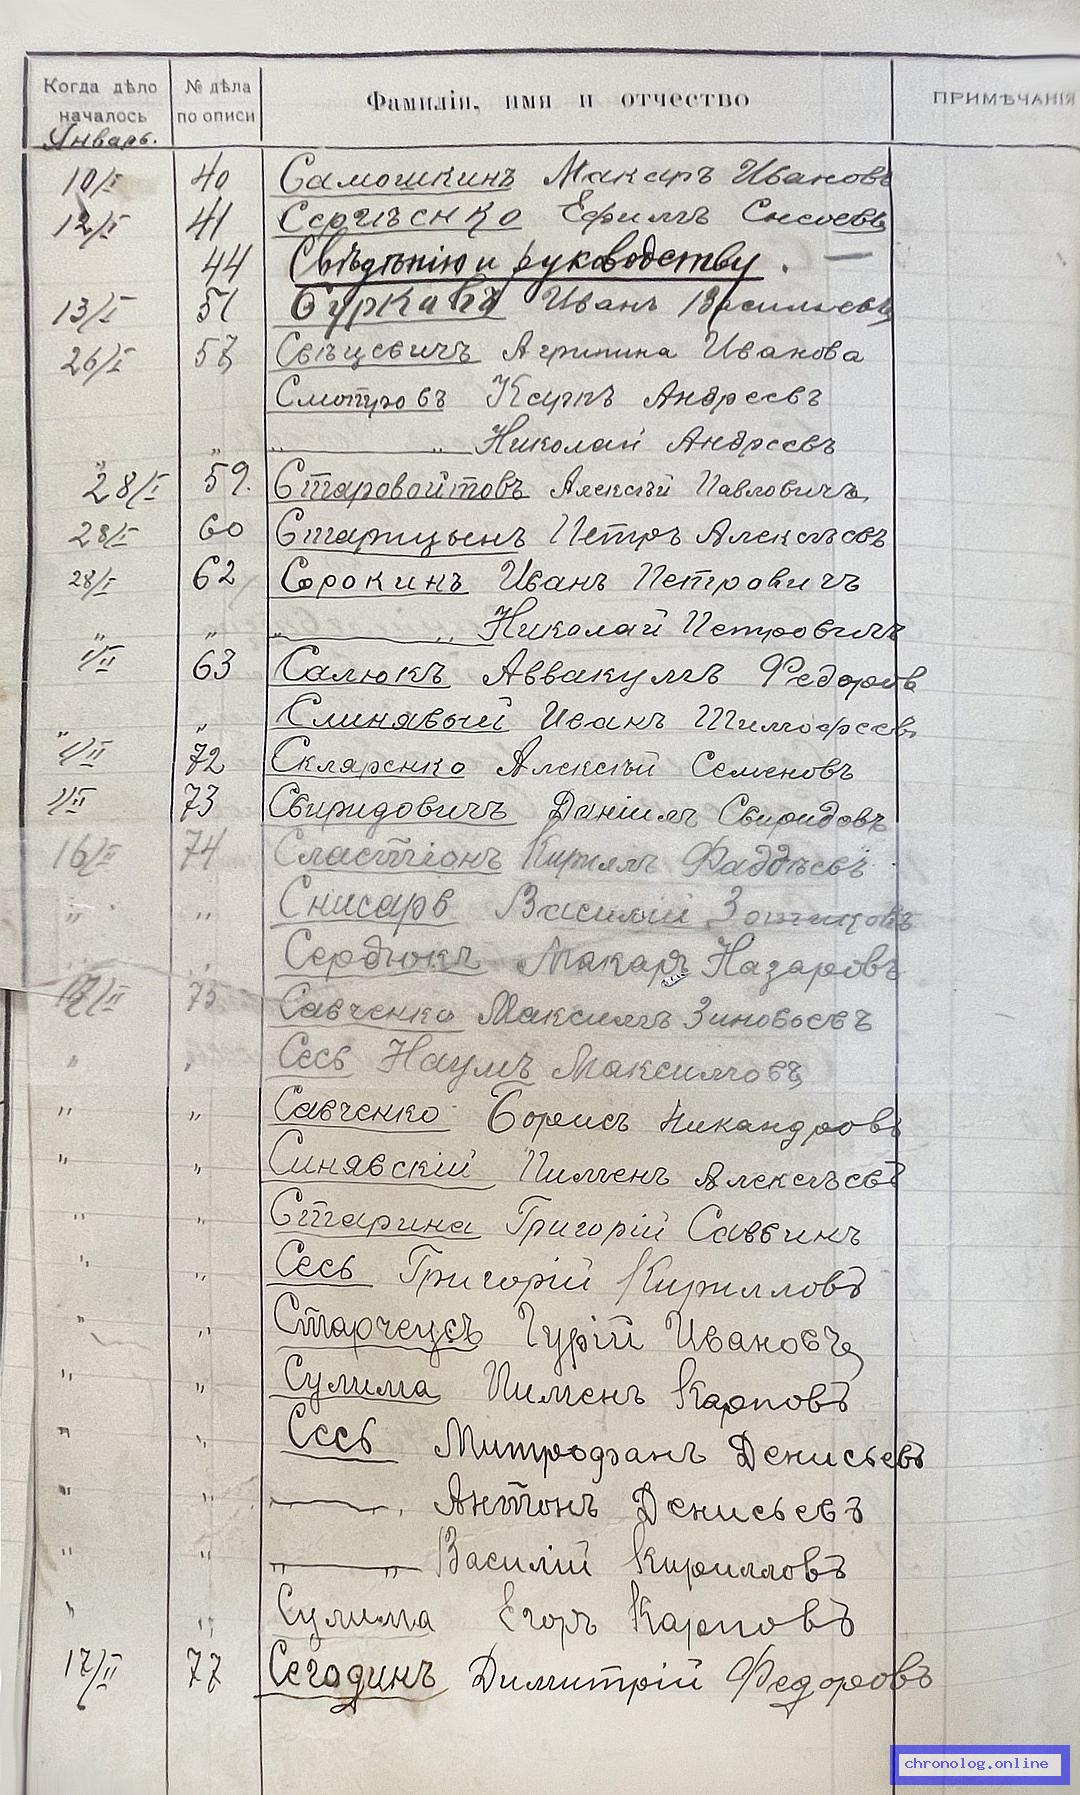 Когда дѣло началось № дѣла по описи Фамилія, имя и отчество ПРИМѢЧАНІЯ
Январь.
10/I 40 Самошкинъ Макаръ Ивановъ
12/I 41 Сергѣенко Ефимъ Сысоевъ
44 Свѣдѣнію и руководству. —
13/I 51 Суркавъ Иванъ Васильевъ
26/I 57 Свѣцевичъ Агрипина Иванова
Смотровъ Карпъ Андреевъ
" " " Николай Андреевъ
28/I 59. Старовойтовъ Алексѣй Павловичъ
28/I 60 Старицынъ Петръ Алексѣевъ
28/I 62 Сорокинъ Иванъ Петровичъ
" " " Николай Петровичъ
1/II 63 Салюкъ Аввакумъ Федоровъ
" " Слинявый Иванъ Тимофеевъ
1/II 72 Скляренко Алексѣй Семеновъ
1/II 73 Свиридовичъ Даніилъ Свиридовъ
16/II 74 Сластіонъ Кириллъ Фаддѣевъ
" " Снисарь Василій Зотиковъ
" " Сердюкъ Макаръ Назаровъ
17/II 75 Савченко Максимъ Зиновьевъ
" " Сесь Наумъ Максимовъ
" " Савченко Борисъ Никандровъ
" " Синявскій Пименъ Алексѣевъ
" " Старина Григорій Саввинъ
" " Сесь Григорій Кирилловъ
" " Старчеусъ Гурій Ивановъ
" " Сулима Пименъ Карповъ
" " Сесь Митрофанъ Денисьевъ
" " Антонъ Денисьевъ
" " " " Василій Кирилловъ
" " Сулима Егоръ Карповъ
17/II 77 Сегодинъ Димитрій Федоровъ
chronolog.online